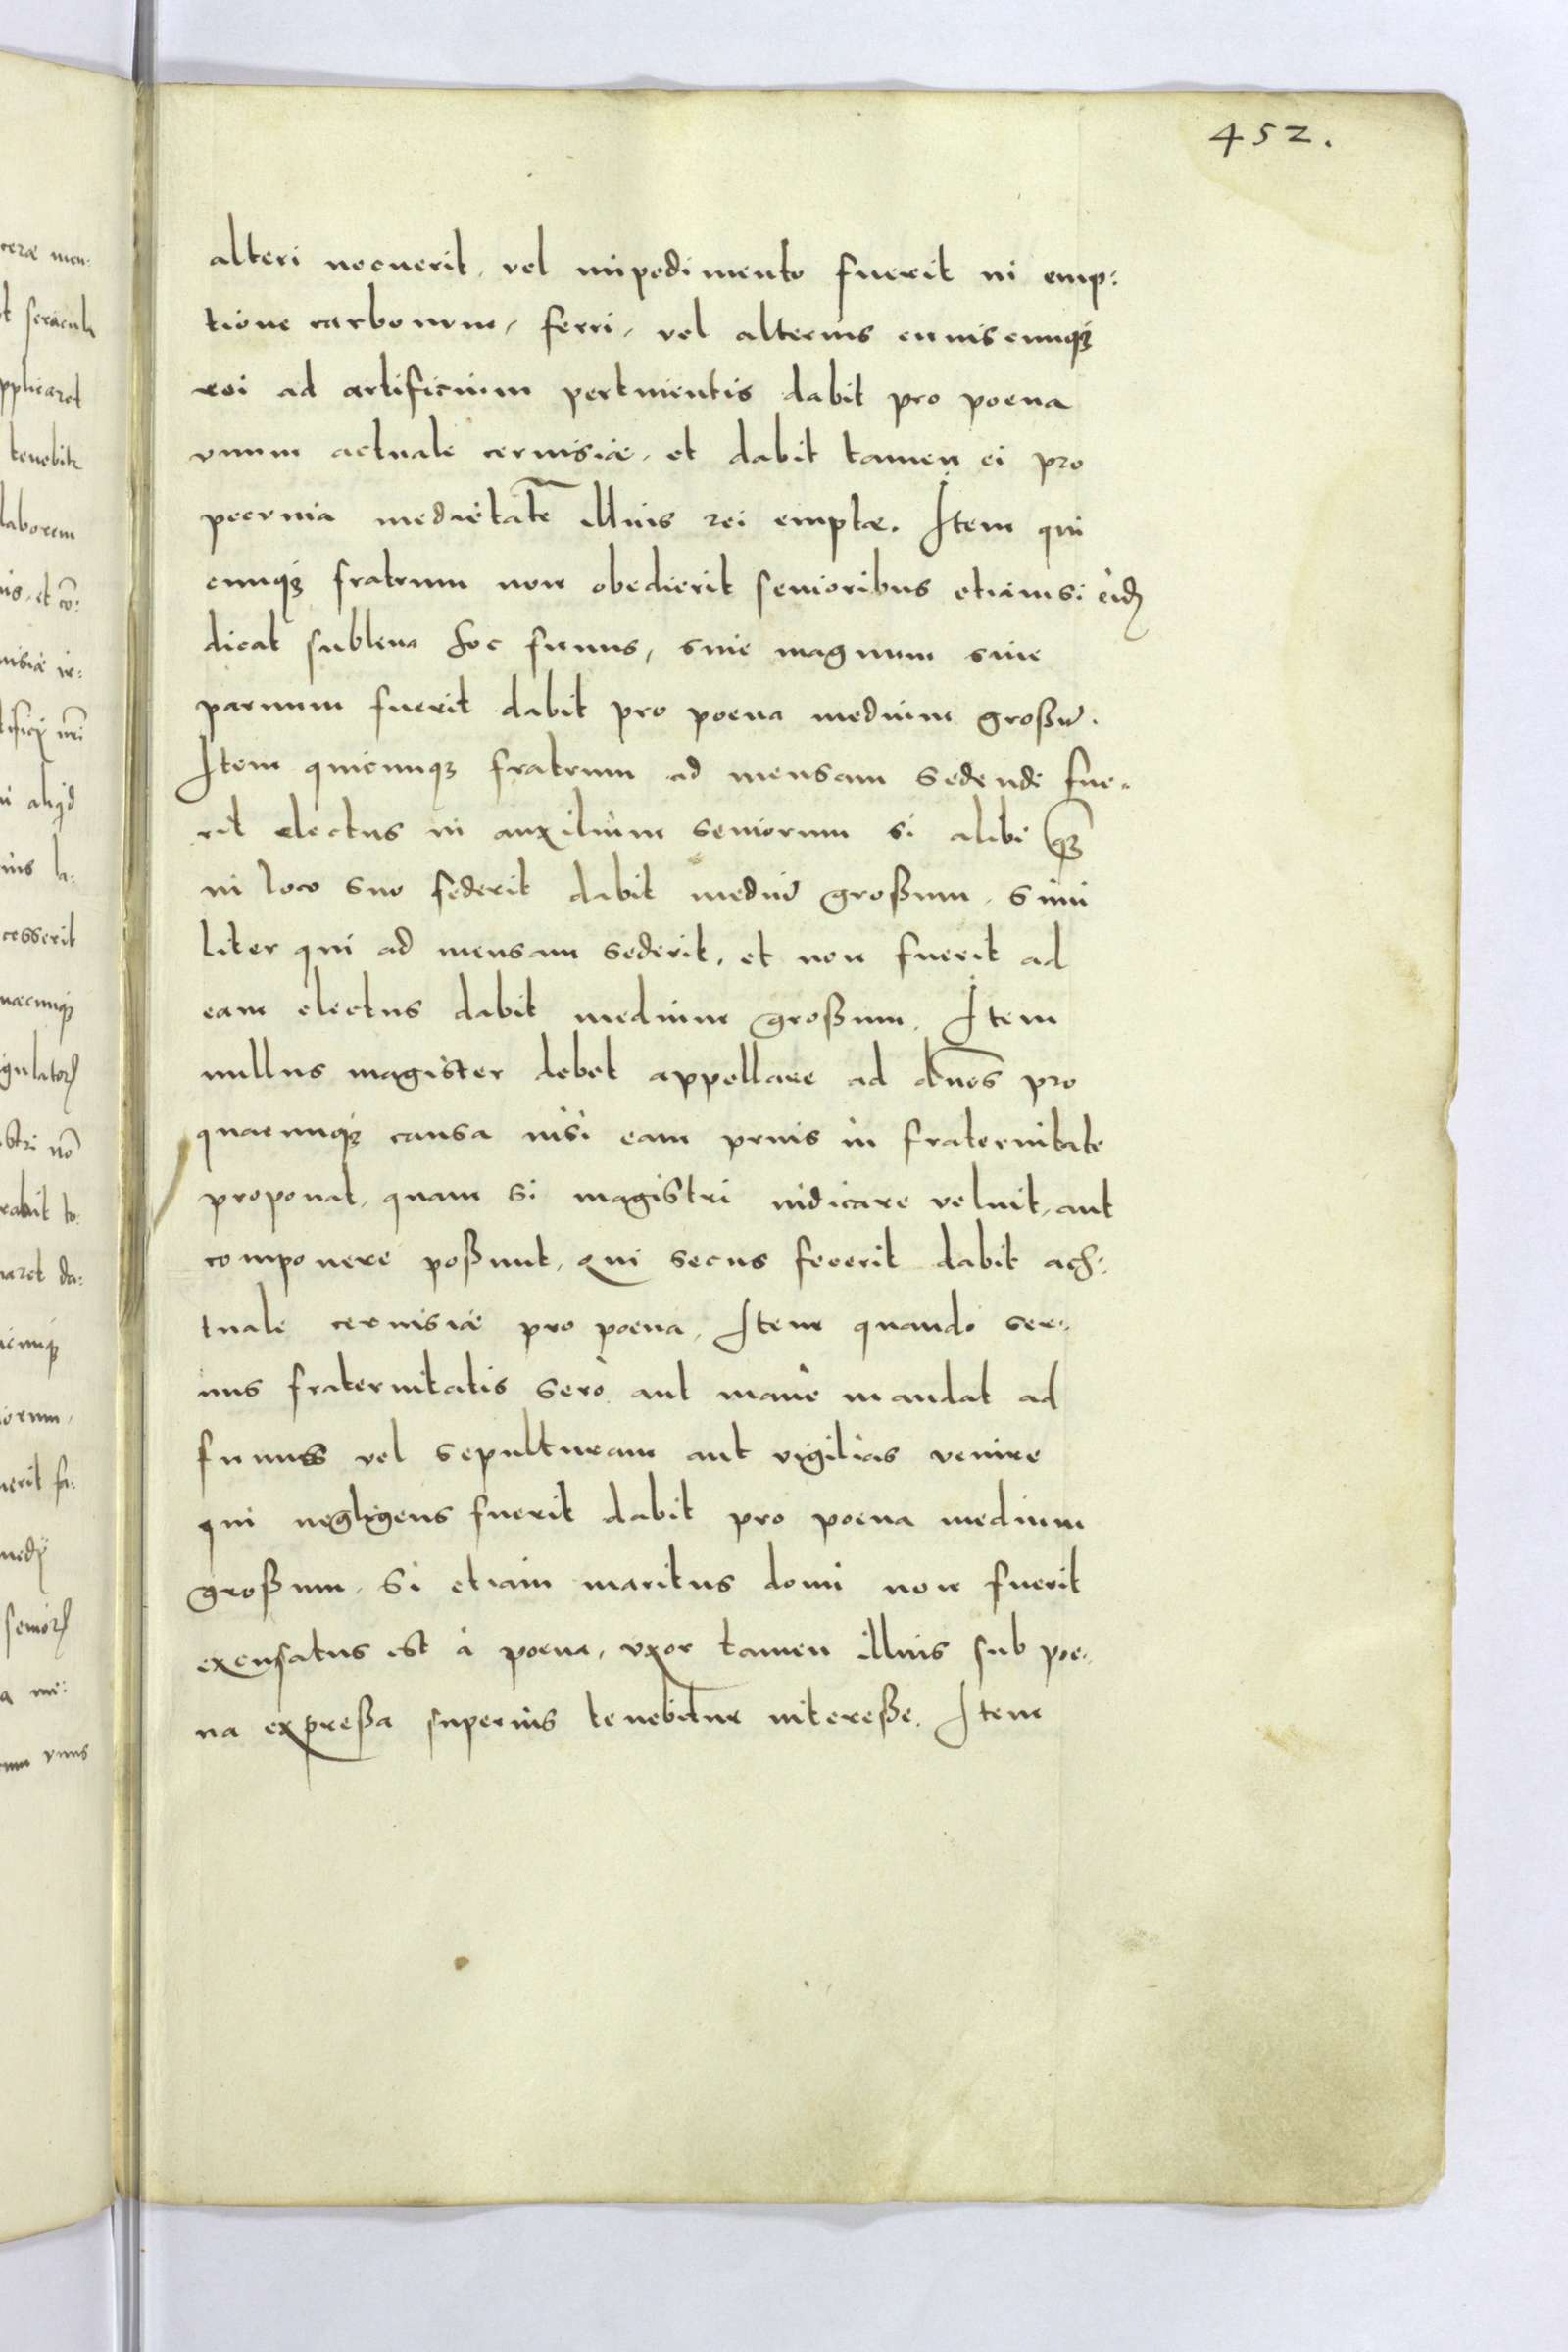 452.
alteri nocuerit, vel impedimento fuerit in emp:
tione carbonum, ferri, vel alterius cuiuscunqꝫ
rei ad artificium pertinentis dabit pro poena
vnum actuale ceruisiæ, et dabit tamen ei pro
pecunia medietatē illius rei emptæ. Item qui
cunqꝫ fratrum non obedierit senioribus etiamsi eid
dicat subleua hoc funus, siue magnum siue
paruum fuerit dabit pro poena medium großū.
Item quicunqꝫ fratrum ad mensam sedendi fue-
rit electus in auxilium seniorum si alibi qꝫ
in loco suo sederit dabit mediū großum, simi
liter qui ad mensam sederit, et non fuerit ad
eam electus dabit medium großum. Item
nullus magister debet appellare ad dn̄os pro
quacunqꝫ causa nisi eam prius in fraternitate
proponat, quam si magistri iudicare velint, aut
componere poßunt, qui secus fecerit dabit ach:
tuale ceruisiæ pro poena, Item quando ser-
uus fraternitatis serò aut manè mandat ad
funus vel sepulturam aut vigilias venire
qui negligens fuerit dabit pro poena medium
großum, si etiam maritus domi non fuerit
excusatus est à poena, vxor tamen illius sub poe-
na expreßa superius tenebitur intereße. Item
ceræ men:
t seracula
pplicaret
tenebitr
laborem
nis, et cō:
uisiæ ir:
tificij nr̄i
aliqd
ius la:
cesserit
uacunqꝫ
stri nō
icunqꝫ
iorum,
uerit fa:
medij
a me:
vnus